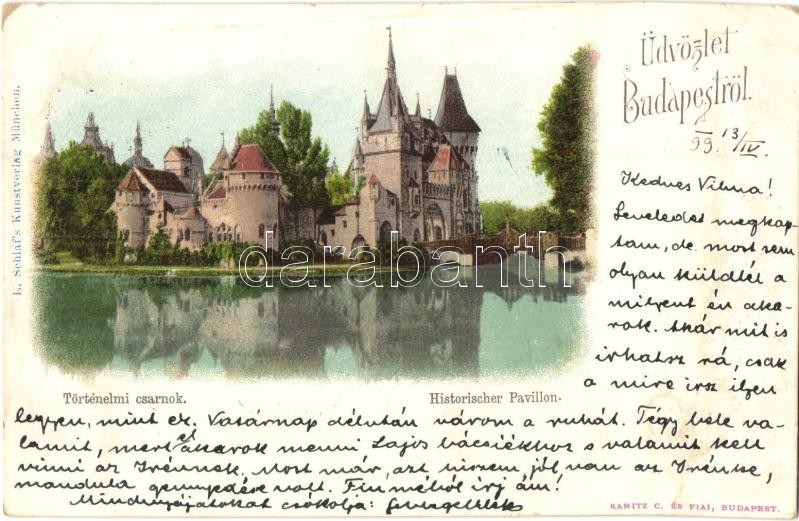 Üdvözlet
Budapestről.
99. 13/IV.
L. Schlaf's Kunstverlag München.
Kedves Vilma!
Leveledet megkap-
tam, de most sem
olyan küldtél a
milyent én aka-
rok. Akármit is
irhatsz rá, csak
a mire irsz ilyen
darabanth
Történelmi csarnok.
Historischer Pavillon.
legyen, mint ez. Vasárnap délután várom a ruhát. Tégy bele va-
lamit, mert el akarok menni Lajos bácsiékhoz s valamit kell
vinni az Irénnek. Most már, azt hiszem jól van az Irénke,
mandula gennyedése volt. Fiuméból irj ám!
Mindnyájatokat csókolja:
KANITZ C. ÉS FIAI, BUDAPEST.